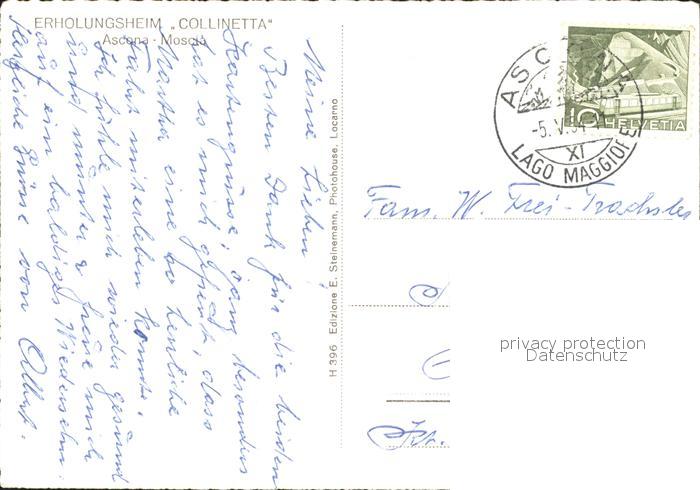 ERHOLUNGSHEIM „COLLINETTA"
Ascona - Moscia
Meine Lieben!
Besten Dank für die beiden
Kartengrüsse; ganz besonders
hat es mich gefreut, dass
Martha eine so herrliche
Fahrt miterleben konnte.
Ich fühle mich wieder gesund
und munter & freue mich
auf ein baldiges Wiedersehn.
Herzliche Grüsse von Albert.
H 396 Edizione E. Steinemann, Photohouse, Locarno
ASCONA
-5. V. 54
XI
LAGO MAGGIORE
10 HELVETIA
Fam. W. Frei-Trachsler
Kt.
privacy protection
Datenschutz